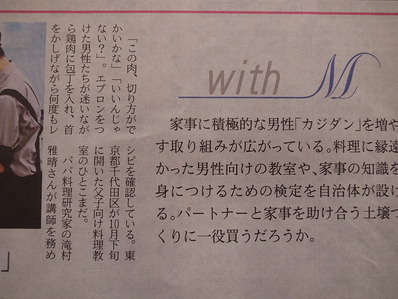 with M
家事に積極的な男性「カジダン」を増や
す取り組みが広がっている。料理に縁遠
かった男性向けの教室や、家事の知識を
身につけるための検定を自治体が設け
る。パートナーと家事を助け合う土壌づ
くりに一役買うだろうか。
「この肉、切り方がで
かいかな」「いいんじゃ
ない?」。エプロンをつ
けた男性たちが迷いなが
ら鶏肉に包丁を入れ、首
をかしげながら何度もレ
シピを確認している。東
京都千代田区が10月下旬
に開いた父子向け料理教
室のひとこまだ。
パパ料理研究家の滝村
雅晴さんが講師を務め
」